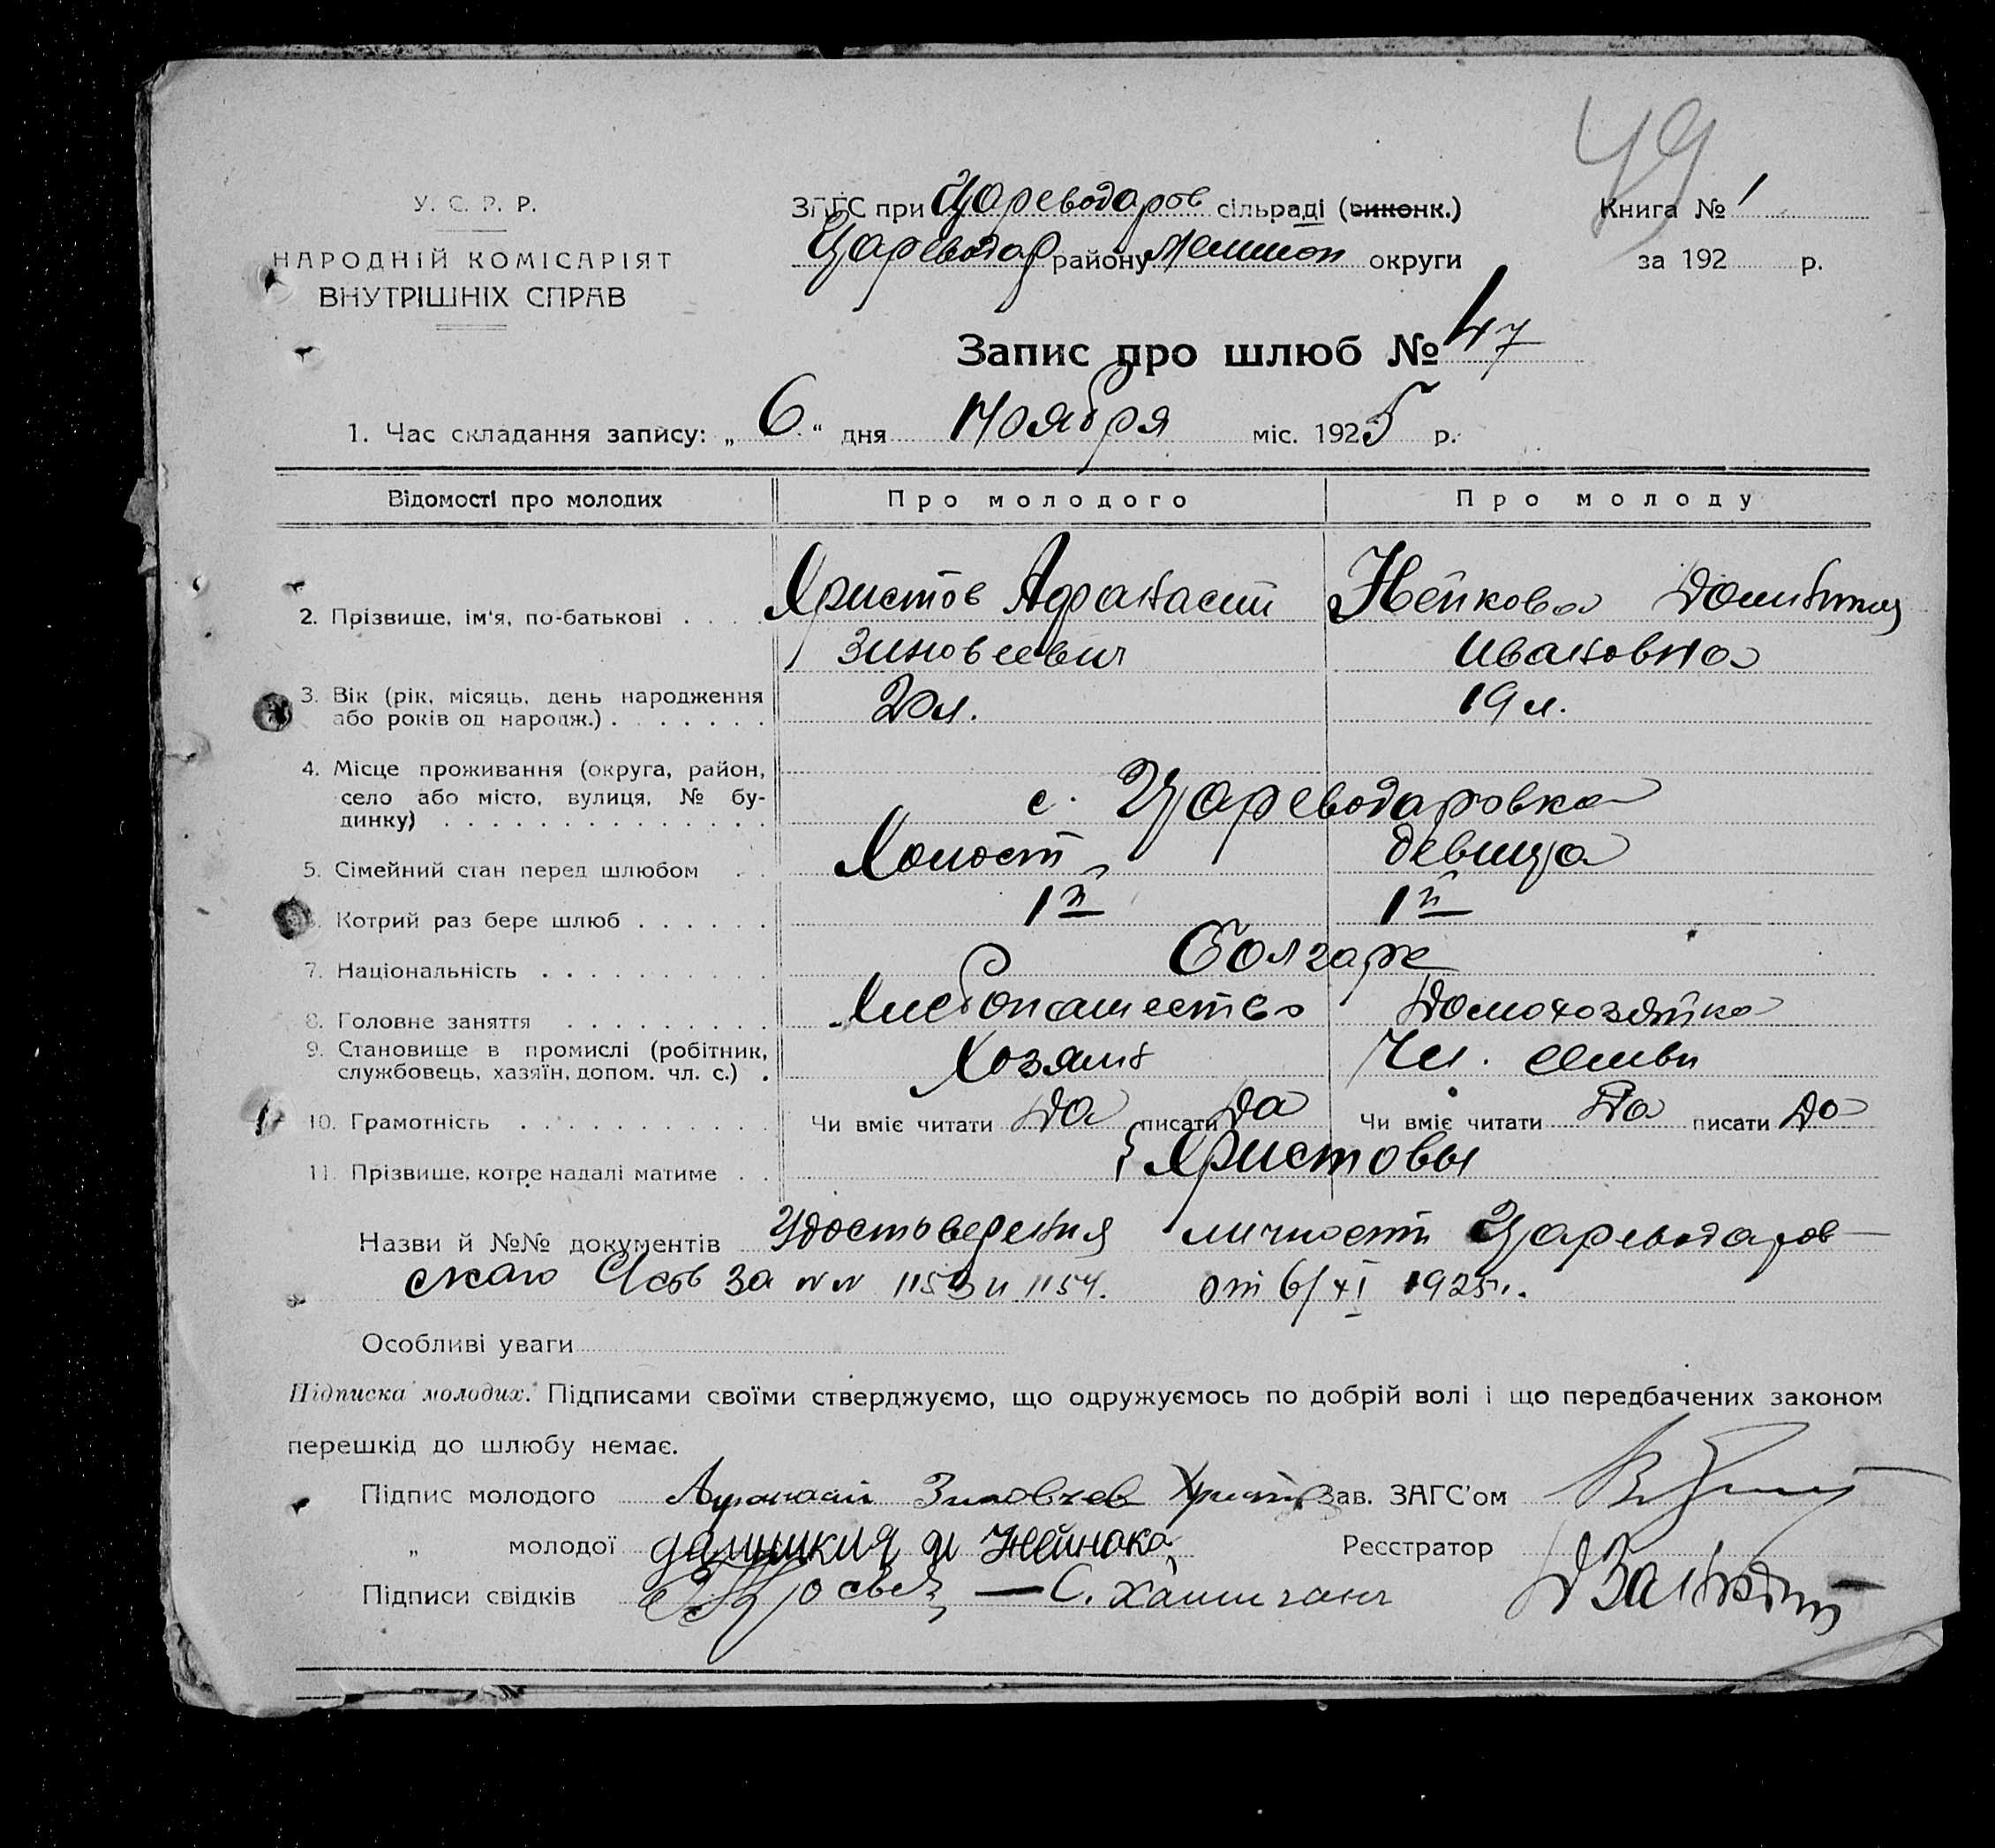 49
У. С. Р. Р.
НАРОДНІЙ КОМІСАРІЯТ
ВНУТРІШНІХ СПРАВ
ЗАГС при Цареводаров сільраді (виконк.)
Цареводар району округи
Книга № 1
за 192 р.
Запис про шлюб № 47
1. Час складання запису: „ 6 “ дня Ноября міс. 1925 р.
Відомості про молодих Про молодого Про молоду
2. Прізвище, ім'я, по-батькові . . . . Христов Афанасий Нейкова
Зиновеевич Ивановна
3. Вік (рік, місяць, день народження
або років од народж.) . . . . . . . 20 л. 19 л.
4. Місце проживання (округа, район,
село або місто, вулиця, № бу-
динку) . . . . . . . . . . . . . . с. Цареводаровка
5. Сімейний стан перед шлюбом . . Холост девица
Котрий раз бере шлюб . . . . . . 1й 1й
7. Національність . . . . . . . . . . Болгаре
8. Головне заняття . . . . . . . . . Хлебопашество Домохозяйка
9. Становище в промислі (робітник,
службовець, хазяїн, допом. чл. с.) . Хозяин Чл. семьи
10. Грамотність . . . . . . . . . . . Чи вміє читати Да писати Да Чи вміє читати Да писати Да
11. Прізвище, котре надалі матиме . . } Христовы
Назви й №№ документів Удостоверения личности Цареводаров-
скаго за NN 1153 и 1154. от 6/XI 1925 г.
Особливі уваги
Підписка молодих. Підписами своїми стверджуємо, що одружуємось по добрій волі і що передбачених законом
перешкід до шлюбу немає.
Підпис молодого Афанасий Зиновеев Христов Зав. ЗАГС'ом
„ молодої Реєстратор
Підписи свідків — С.